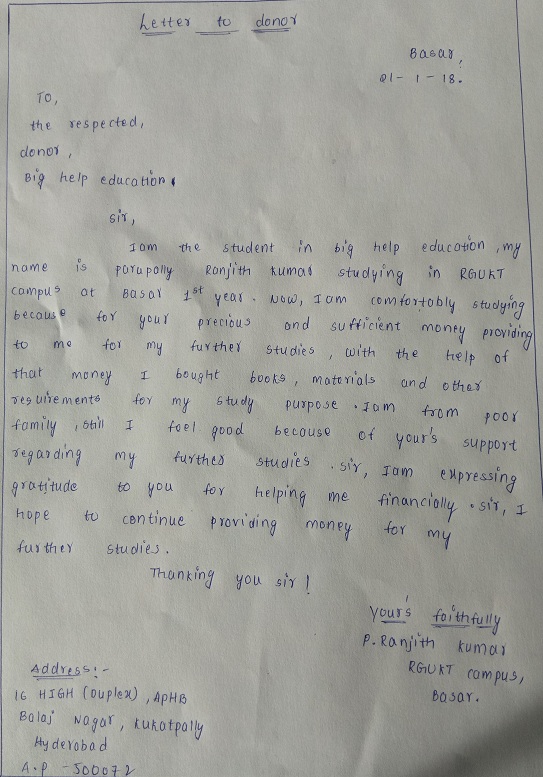 Letter to donor
Basar,
21-1-18.
To,
the respected,
donor,
Big help education.
sir,
I am the student in big help education, my
name is parupally Ranjith kumar studying in RGUKT
campus at Basar 1st year. Now, I am comfortably studying
because for your precious and sufficient money providing
to me for my further studies, with the help of
that money I bought books, materials and other
requirements for my study purpose. I am from poor
family, still I feel good because of your's support
regarding my further studies. sir, I am expressing
gratitude to you for helping me financially. sir, I
hope to continue providing money for my
further studies.
Thanking you sir!
Your's faithfully
P. Ranjith kumar
RGUKT campus,
Basar.
Address:-
16 HIGH (Duplex), APHB
Balaj Nagar, Kukatpally
Hyderabad
A.P - 500072